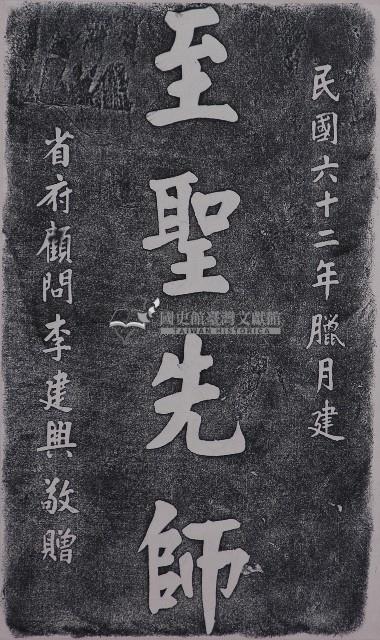 民國六十二年臘月建
至聖先師
省府顧問李建興敬贈
國史館臺灣文獻館
TAIWAN HISTORICA